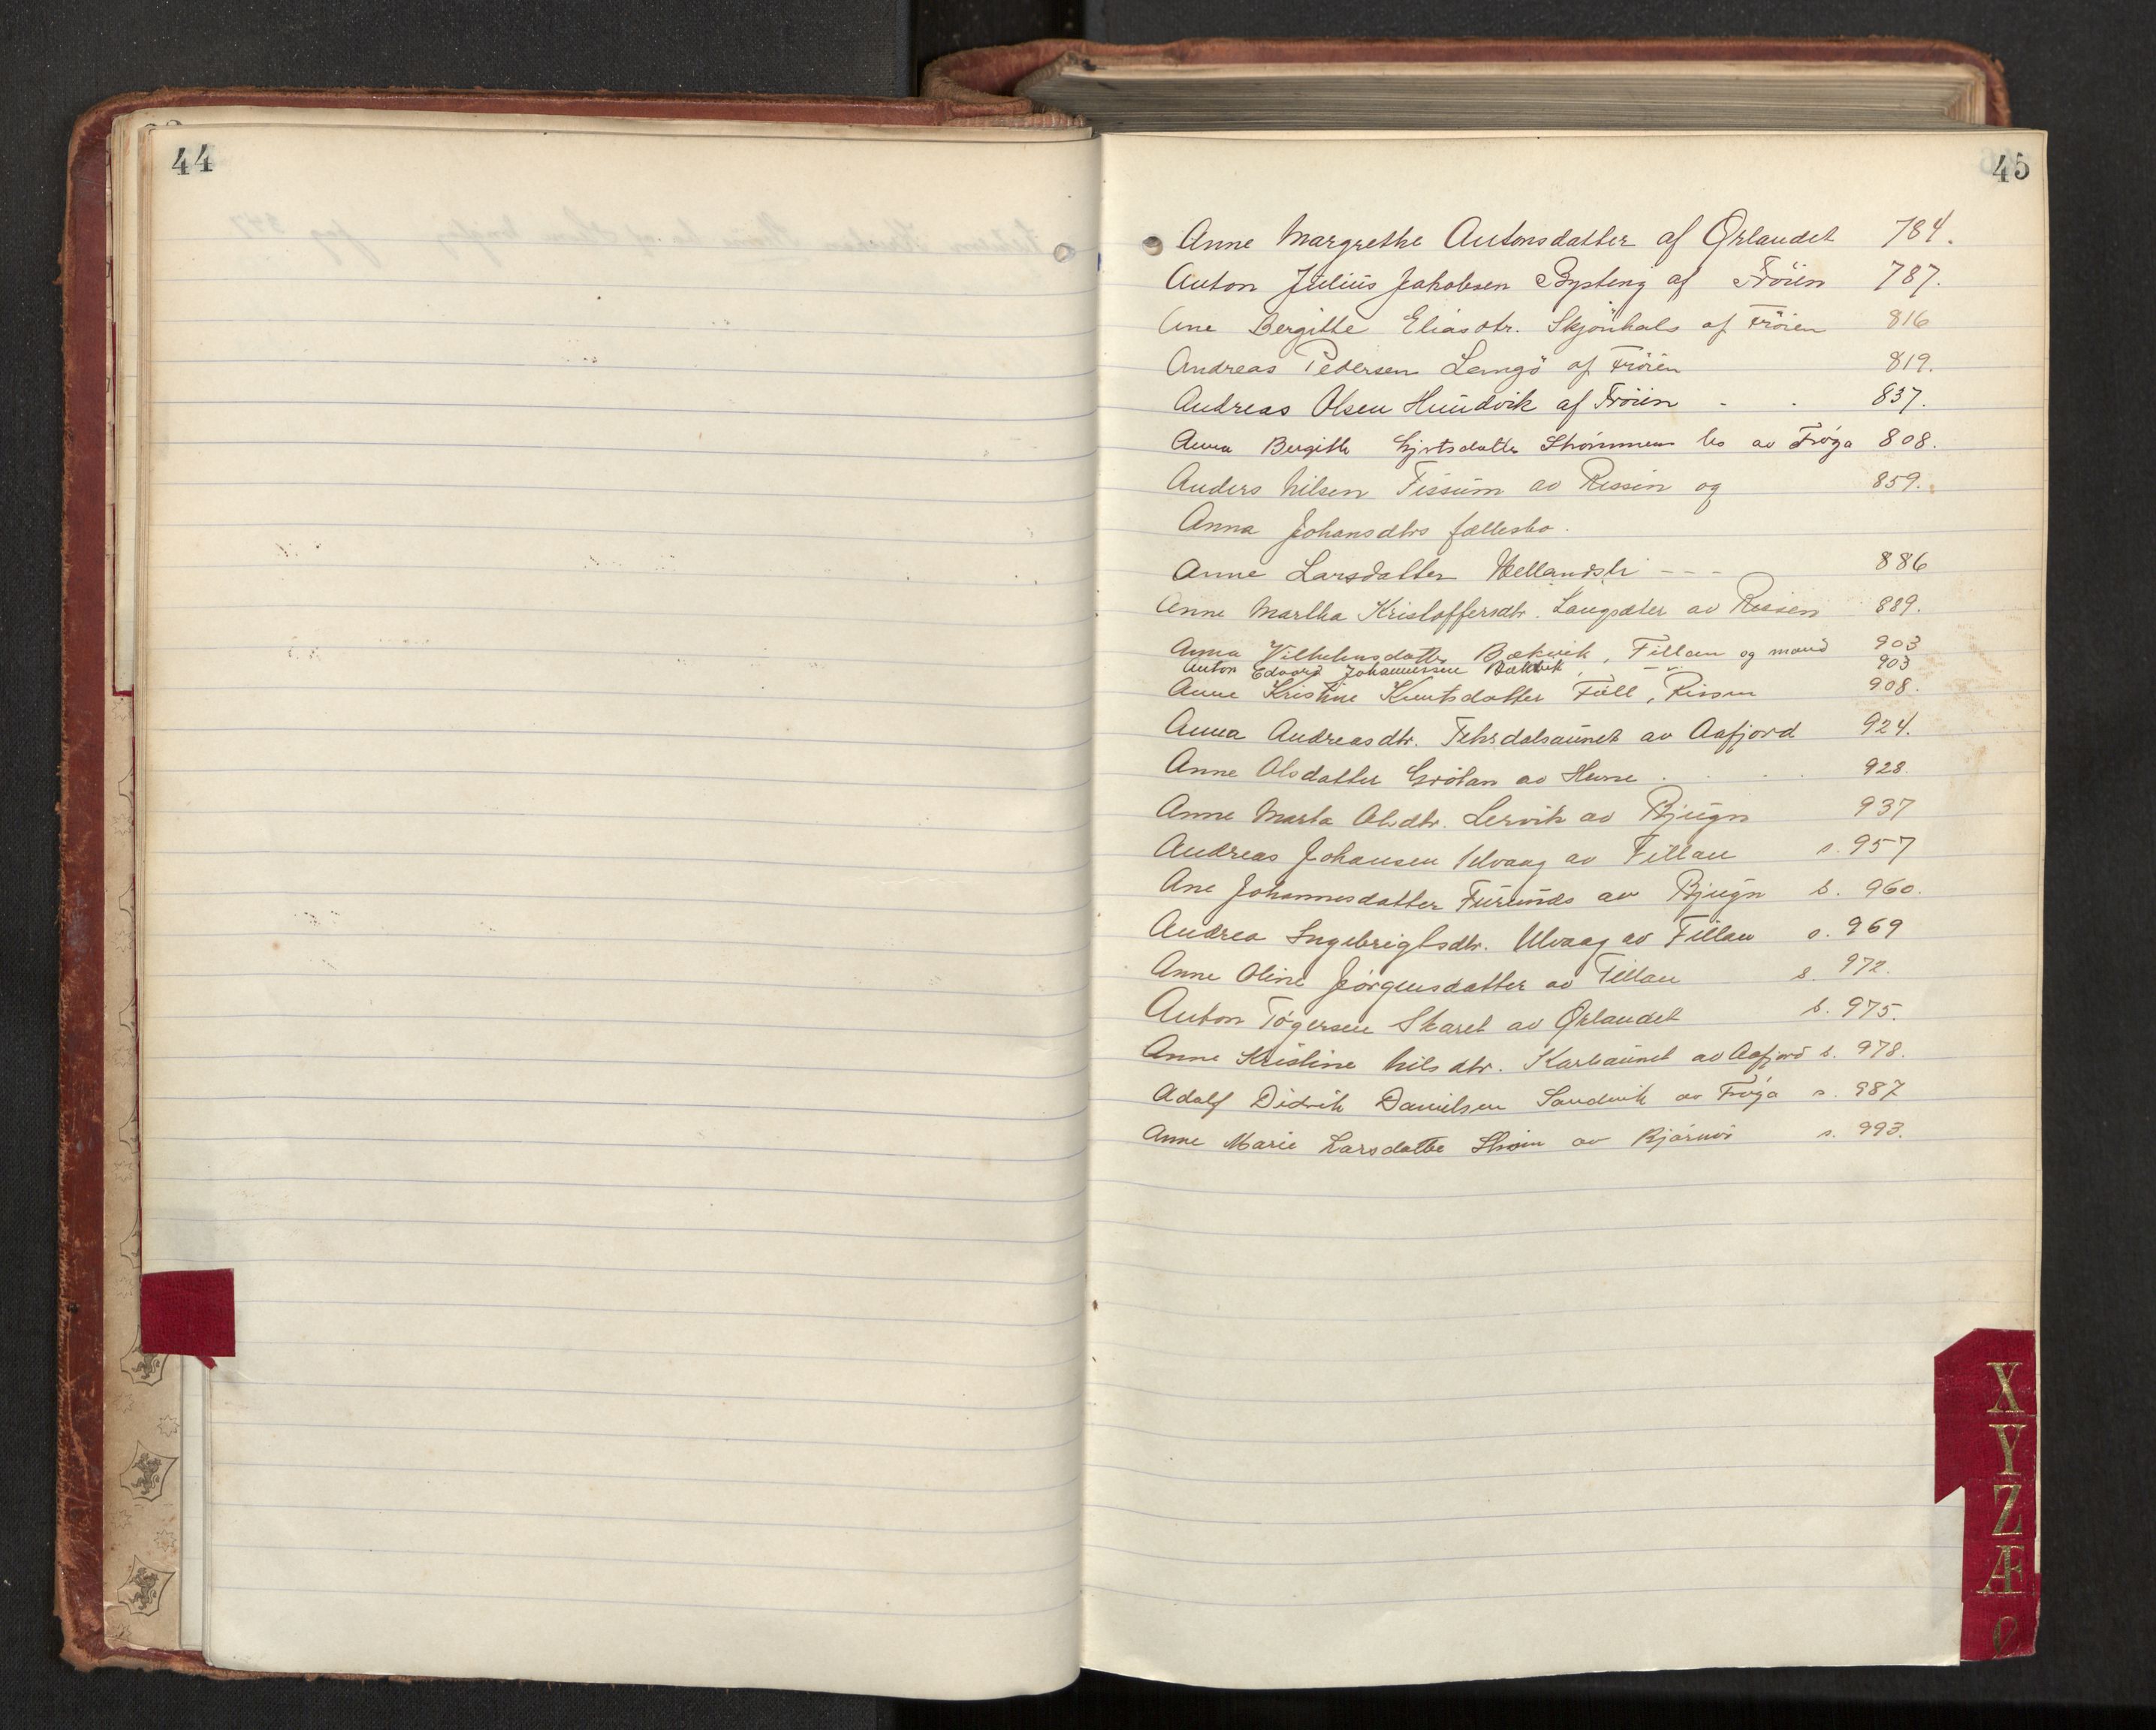 44
45
Anne Margrethe Antonsdatter af Ørlandet 784.
Anton Julius Jakobsen Bysting af Fröien 787.
Ane Bergitte Eliasdtr. Skjönhals af Fröien 816
Andreas Pedersen Langö af Fröien 819.
Andreas Olsen Hundvik af Fröien - - 837.
Anna Bergitte Gjertsdatter Strömmen bo av Frøya 808.
Anders Nilsen Fissum av Rissen og 859.
Anna Johansdtrs fællesbo.
Anne Larsdatter Hellandsli - - - 886
Anne Martha Kristoffersdtr. Langsæter av Rissen 889.
Anna Vilhelmsdatter Bækvik, Fillan og mand 903
Anton Edvard Johannessen Bækvik, - " - 903
Anne Kristine Knutsdatter Füll, Rissen 908.
Anna Andreasdtr. Tehrdalsaunet av Aafjord 924.
Anne Olsdatter Grötan av Hevne . . . . 928.
Anne Marta Olsdtr. Lervik av Bjugn 937
Andreas Johansen Ulvaag av Fillan s. 957
Ane Johannesdatter Furunds av Bjugn s. 960.
Andrea Ingebrigtsdtr. Ulvaag av Fillan s. 969
Anne Oline Jörgensdatter av Fillan s. 972.
Anton Tögersen Skaret av Ørlandet s. 975.
Anne Kristine Nilsdtr. Karlsaunet av Aafjord s. 978.
Adolf Didrik Danielsen Sandvik av Frøya s. 987
Anne Marie Larsdatter Strøm av Bjørnør s. 993.
X
Y
Z
Æ
Ø